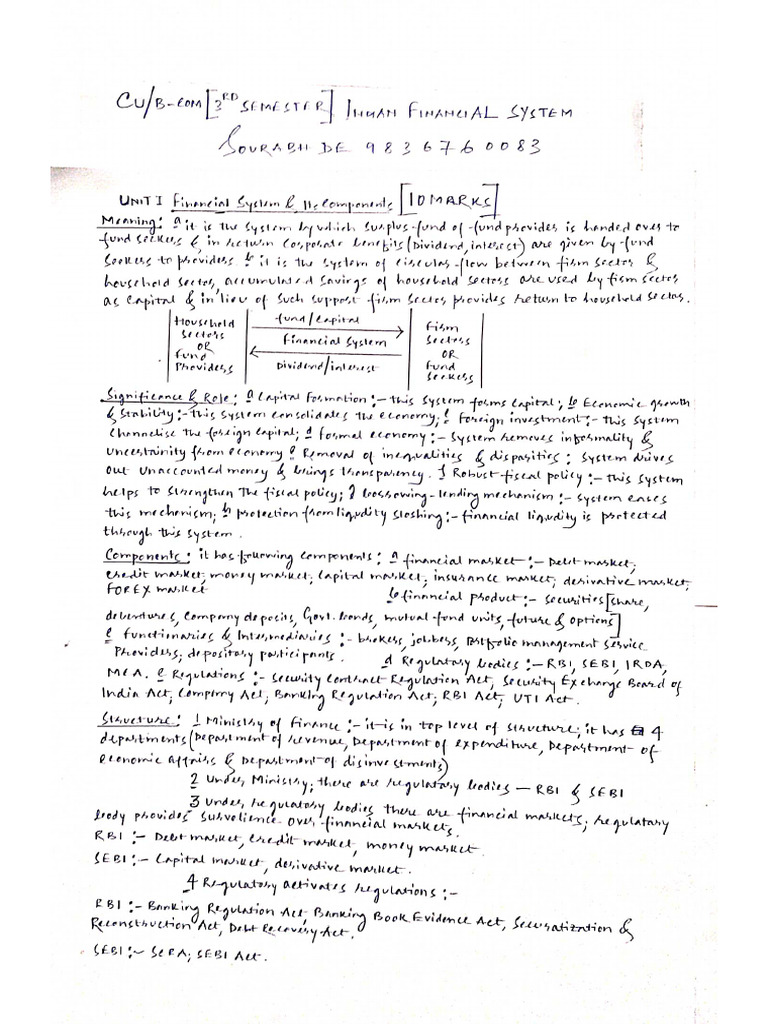 CU/B-COM [3RD SEMESTER] INDIAN FINANCIAL SYSTEM
SOURABH DE 9836760083
UNIT I Financial System & Its Components [10 MARKS]
Meaning: a it is the system by which surplus fund of fund provides is handed over to
fund seekers & in return corporate benefits (Dividend, interest) are given by fund
seekers to providers b it is the system of circular flow between firm sector &
household sector, accumulated savings of household sectors are used by firm sector
as capital & in lieu of such support firm sector provides return to household sector.
Household Sectors OR Fund Providers
fund/capital
Financial System
Dividend/interest
Firm Sectors OR Fund Seekers
Significance & Role: a Capital Formation :- this system forms capital; b Economic growth
& Stability :- this system consolidates the economy; c Foreign investment :- this system
channelise the foreign capital; d formal economy :- system removes informality &
uncertainity from economy e Removal of inequalities & disparities : system drives
out unaccounted money & brings transparency. f Robust fiscal policy :- this system
helps to strengthen the fiscal policy; g borrowing-lending mechanism :- system eases
this mechanism; h protection from liqudity sloshing :- financial liqudity is protected
through this system.
Components: it has following components : a financial market :- Debt market,
credit market, money market, capital market, insurance market, derivative market,
FOREX market
b financial product :- securities [share,
debentures, company deposits, Govt. bonds, mutual fund units, future & options]
c functionaries & Intermediaries :- brokers, jobbers, Portfolio management service
Providers; depository participants. d Regulatory bodies :- RBI, SEBI, IRDA,
MCA. e Regulations :- Security Contract Regulation Act, Security Exchange Board of
India Act, Company Act, Banking Regulation Act, RBI Act, UTI Act.
Structure: 1 Ministry of Finance :- it is in top level of structure; it has 4
departments (Department of revenue, Department of expenditure, Department of
economic affairs & Department of disinvestments)
2 Under Ministry; there are regulatory bodies — RBI & SEBI
3 Under regulatory bodies there are financial markets; regulatory
body provides survelience over financial markets.
RBI :- Debt market, credit market, money market.
SEBI :- Capital market, derivative market.
4 Regulatory activates regulations :-
RBI :- Banking Regulation Act, Banking Book Evidence Act, Securatization &
Reconstruction Act, Debt Recovery Act.
SEBI :- SCRA; SEBI Act.